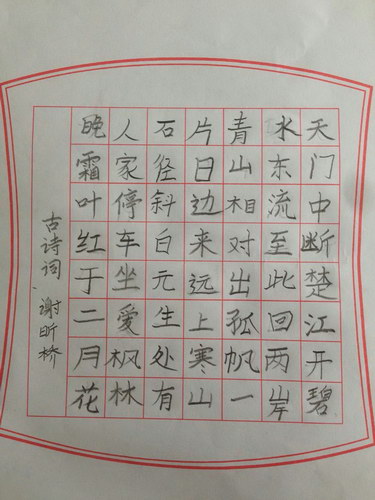 天门中断楚江开碧
水东流至此回两岸
青山相对出孤帆一
片日边来远上寒山
石径斜白元生处有
人家停车坐愛枫林
晚霜叶红于二月花
古诗词、谢昕桥